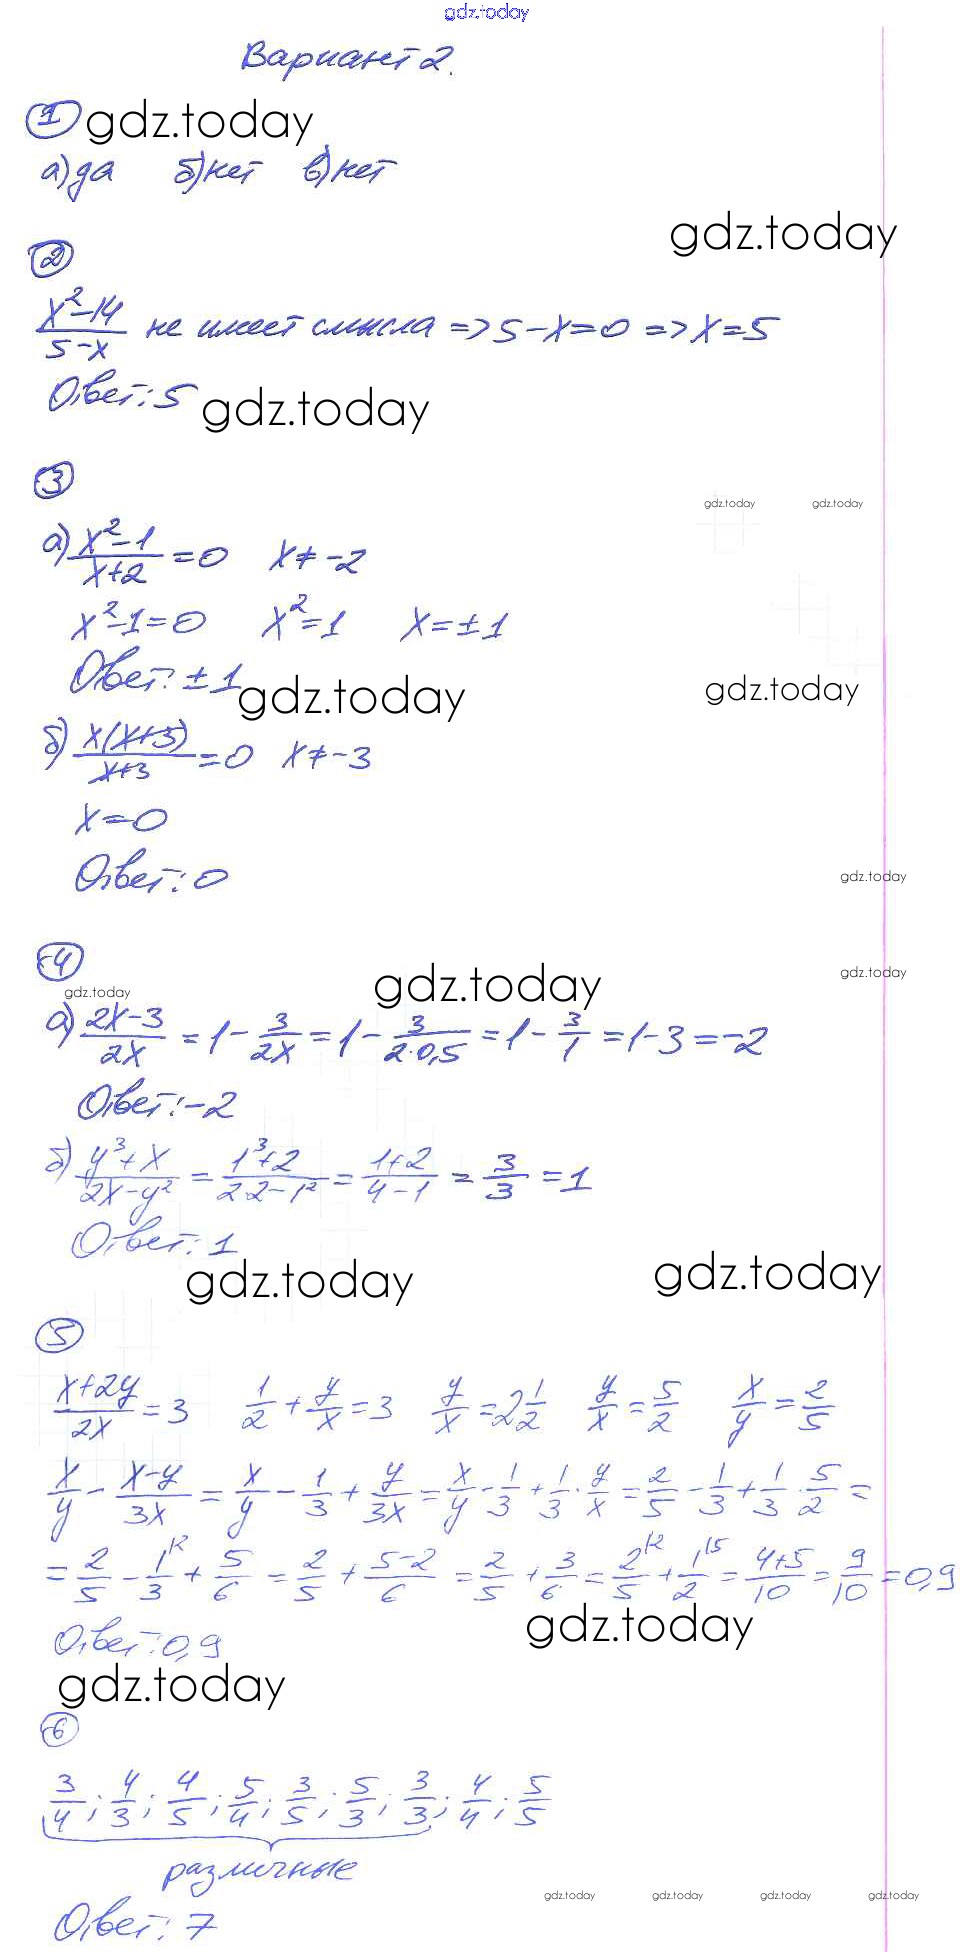 gdz.today
Вариант 2.
1 gdz.today
а) да б) нет в) нет
gdz.today
2
x²-14/5-x не имеет смысла => 5-x=0 => x=5
Ответ: 5 gdz.today
3
gdz.today gdz.today
а) x²-1/x+2 = 0 x≠-2
x²-1=0 x²=1 x=±1
Ответ: ±1 gdz.today gdz.today
б) x(x+3)/x+3 = 0 x≠-3
x=0
Ответ: 0 gdz.today
4 gdz.today gdz.today
gdz.today
а) 2x-3/2x = 1 - 3/2x = 1 - 3/2·0,5 = 1 - 3/1 = 1-3 = -2
Ответ: -2
б) y³+x/2x-y² = 1³+2/2·2-1² = 1+2/4-1 = 3/3 = 1
Ответ: 1
gdz.today gdz.today
5
x+2y/2x = 3 1/2 + y/x = 3 y/x = 2 1/2 y/x = 5/2 x/y = 2/5
x/y - x-y/3x = x/y - 1/3 + y/3x = x/y - 1/3 + 1/3 · y/x = 2/5 - 1/3 + 1/3 · 5/2 =
= 2/5 - 1/3 \2 + 5/6 = 2/5 + 5-2/6 = 2/5 + 3/6 = 2/5 \2 + 1/2 \5 = 4+5/10 = 9/10 = 0,9
Ответ: 0,9 gdz.today
gdz.today
6
3/4; 4/3; 4/5; 5/4; 3/5; 5/3; 3/3; 4/4; 5/5
различные
gdz.today gdz.today gdz.today gdz.today
Ответ: 7